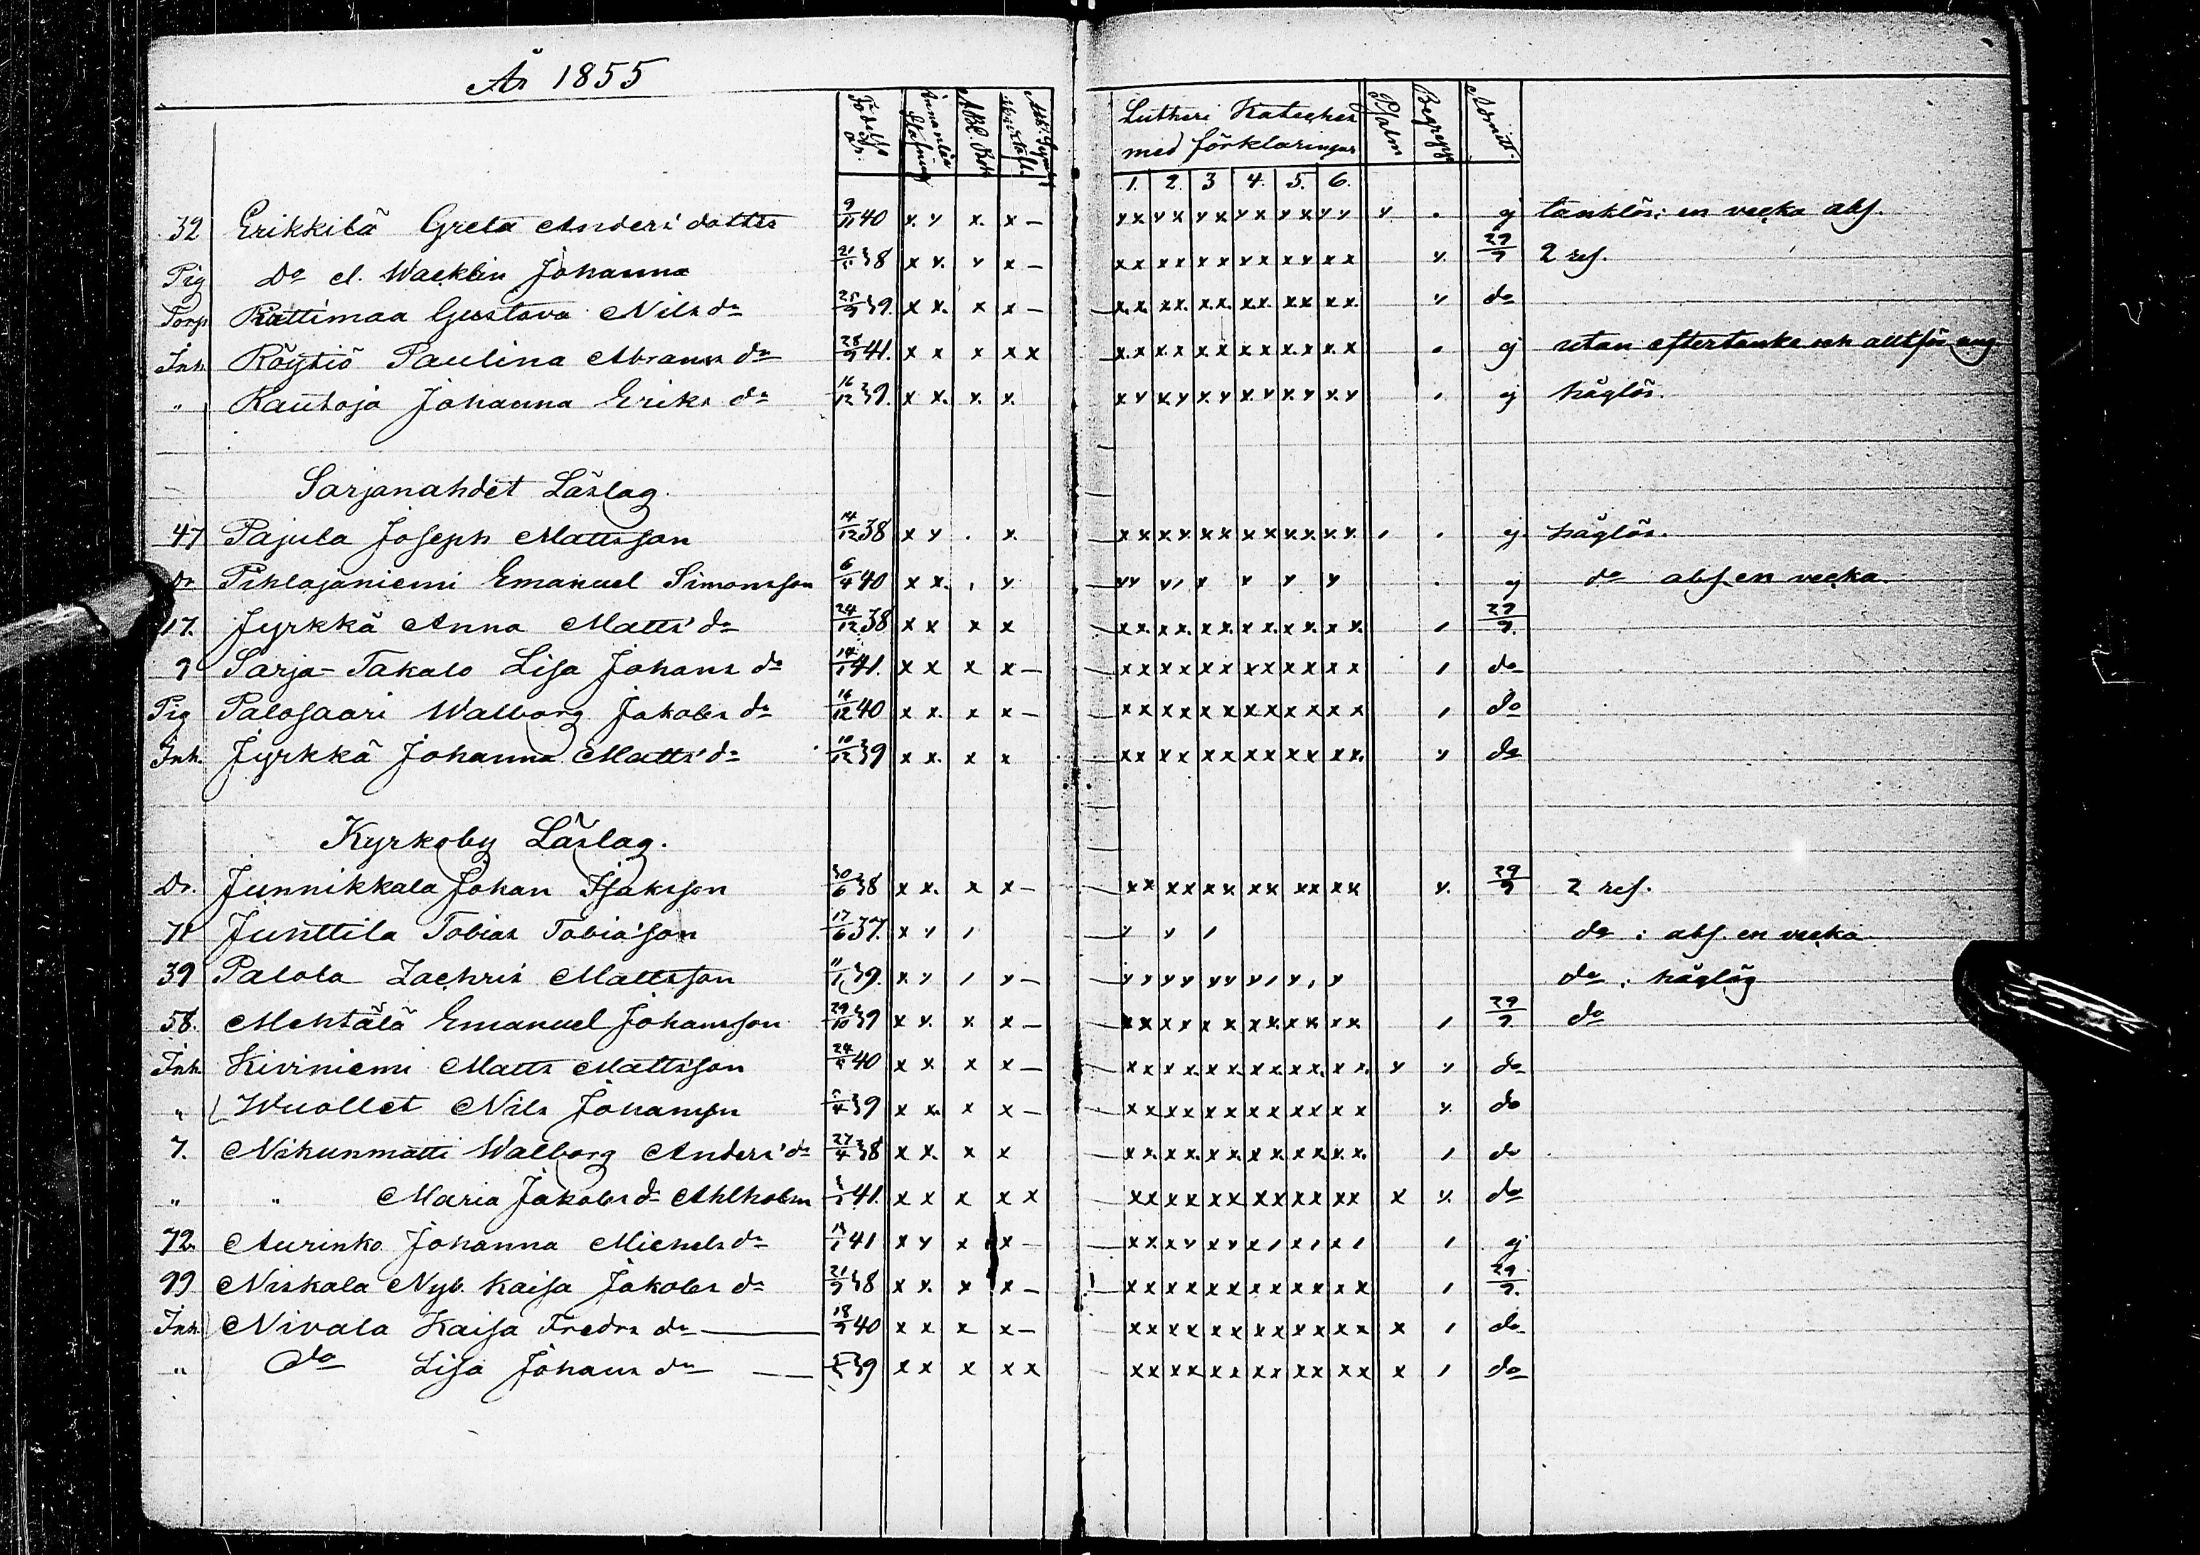 År 1855
Födelse år. Innanläs Stafning ABC Bok
Lutheri Kateches Psalm Begrepp Admitt.
med förklaringar
1. 2. 3 4. 5. 6.
32 Erikkilä Greta Anders' dotter 9/11 40 x. y x. x – xx yx yx yx yx yy y . ej tanklös: en vecka abs.
Pig Do d. Wacklin Johanna 38 x x. y x – xx xx xx yx xy xx y. 29/9 2 res.
Torp Rattimaa Gustava Nils do 39. x x. x x – xx. xx. xx. xx. xx. xx. y do
Inh. Röytiö Paulina Abrams do 28/9 41. x x x x x xx xx xx xx xx xx . ej utan eftertanke och alltför ung
" Rautoja Johanna Eriks do 16/12 39. x x. x. x. xy xy xy xy xy xy . ej håglös.
Sarjanahdet Läslag.
47 Pajula Joseph Mattsson 14/12 38 x y . x xx xy xx xx xx xx. , . ej håglös.
Dr. Pihlajaniemi Emanuel Simonsson 6/4 40 x x. , y yy y, y y y y . ej do abs. en vecka.
17. Jyrkkä Anna Matts' do 24/12 38 x x x x xx. xx. xx. xx. xx. xx. , 29/9.
9 Sarja-Takalo Lisa Johans do 14/1 41. x x x x – xx xx xx xx xx xx , do
Pig Palosaari Walborg Jakobs do 16/12 40 x x. x x – xx xx xx xx xx xx , do
Inh. Jyrkkä Johanna Matts' do 10/12 39 x x. x x xx xx xx xx xx xx. y do
Kyrkoby Läslag.
Dr. Junnikkala Johan Isaksson 30/6 38 x x. x x – xx xx xx xx xx xx y. 29/9 2 res.
71 Junttila Tobias Tobia'son 17/6 37. x y , y y , do : abs. en vecka
39 Palola Zachris Mattsson 11/1 39. x y , y – y, yy yy y, y, y do : håglög
58. Mehtälä Emanuel Johansson 29/10 39 x x. x. x – xx xx xx xx. xx xx , 29/9. do
Inh. Kiviniemi Matts Mattsson 40 x x x x – xx xx. xx. xx. xx. xx. y y do
" Wuollet Nils Johansson 39 x x. x x – xx xx xx xx xx xx y. do
7. Nikunmatti Walborg Anders' do 27/4 38 x x. x x xx. xx. xx. xx. xx. xx. , do
" " Maria Jakobs do Ahlholm 41. x x x x x xx xx xx xx xx xx x y. do
72. Aurinko Johanna Michels do 41 x y x x – xx xy xy x, x, x, , ej
99 Niskala Nyb. Kaisa Jakobs do 21/9 38 x x. x x – xx xx xx xx xx xx , 29/9.
Inh. Nivala Kaisa Fredrs do 18/9 40 x x x x – xx xx xx xx xx xx x , do
" do Lisa Johans do 39 x x x x x xx xx xx xx xx xx x , do